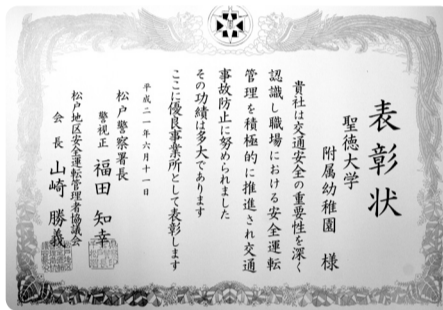 表彰状
聖徳大学
附属幼稚園 様
貴社は交通安全の重要性を深く
認識し職場における安全運転
管理を積極的に推進され交通
事故防止に努められました
その功績は多大であります
ここに優良事業所として表彰します
平成二一年六月十一日
松戸警察署長
警視正 福田 知幸
松戸地区安全運転管理者協議会
会長 山崎 勝義